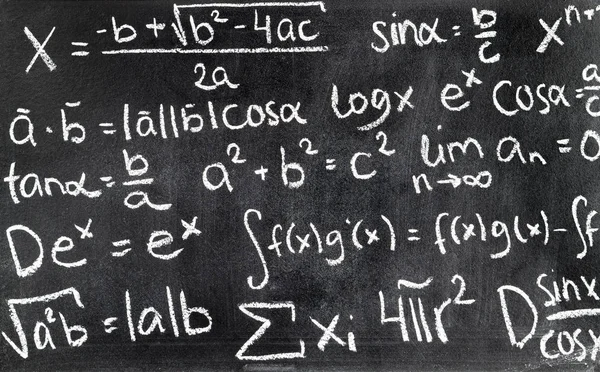 X = -b + √b² - 4ac / 2a   sinα = b/c   x^n+
ā · b̄ = |ā||b̄|cosα   logx   e^x   cosα = a/c
tanα = b/a   a² + b² = c²   lim n→∞ aₙ = 0
De^x = e^x   ∫f(x)g'(x) = f(x)g(x) - ∫f
√a²b = |a|b   ∑xᵢ   4πr²   D sinx/cosx